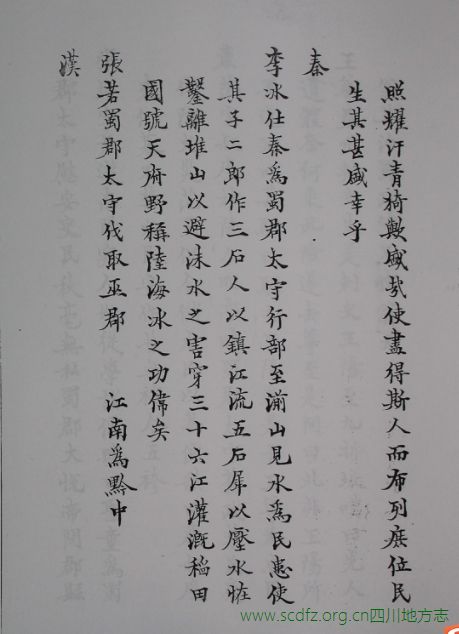 照耀汗青猗歟盛哉使盡得斯人而布列庶位民
生其甚盛幸乎
秦
李冰仕秦爲蜀郡太守行部至湔山見水爲民患使
其子二郎作三石人以鎮江流五石犀以壓水怪
鑿離堆山以避沫水之害穿三十六江灌溉稲田
國號天府野稱陸海冰之功偉矣
張若蜀郡太守伐取巫郡 江南爲黔中
漢
www.scdfz.org.cn四川地方志